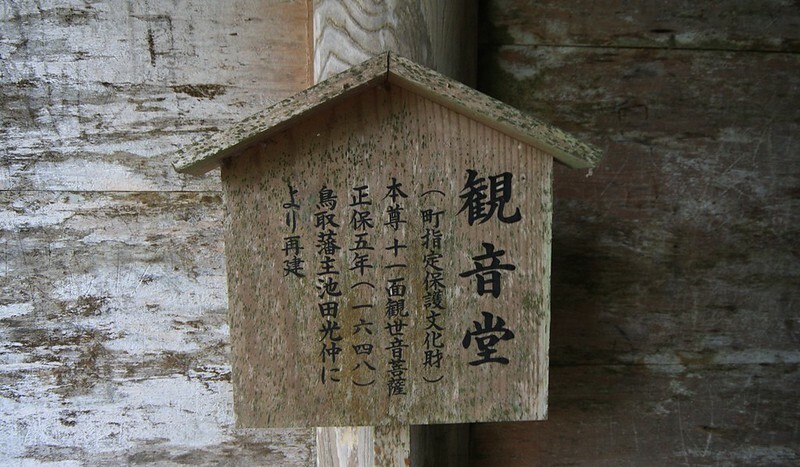 観音堂
（町指定保護文化財）
本尊十一面観世音菩薩
正保五年（一六四八）
鳥取藩主池田光仲に
より再建